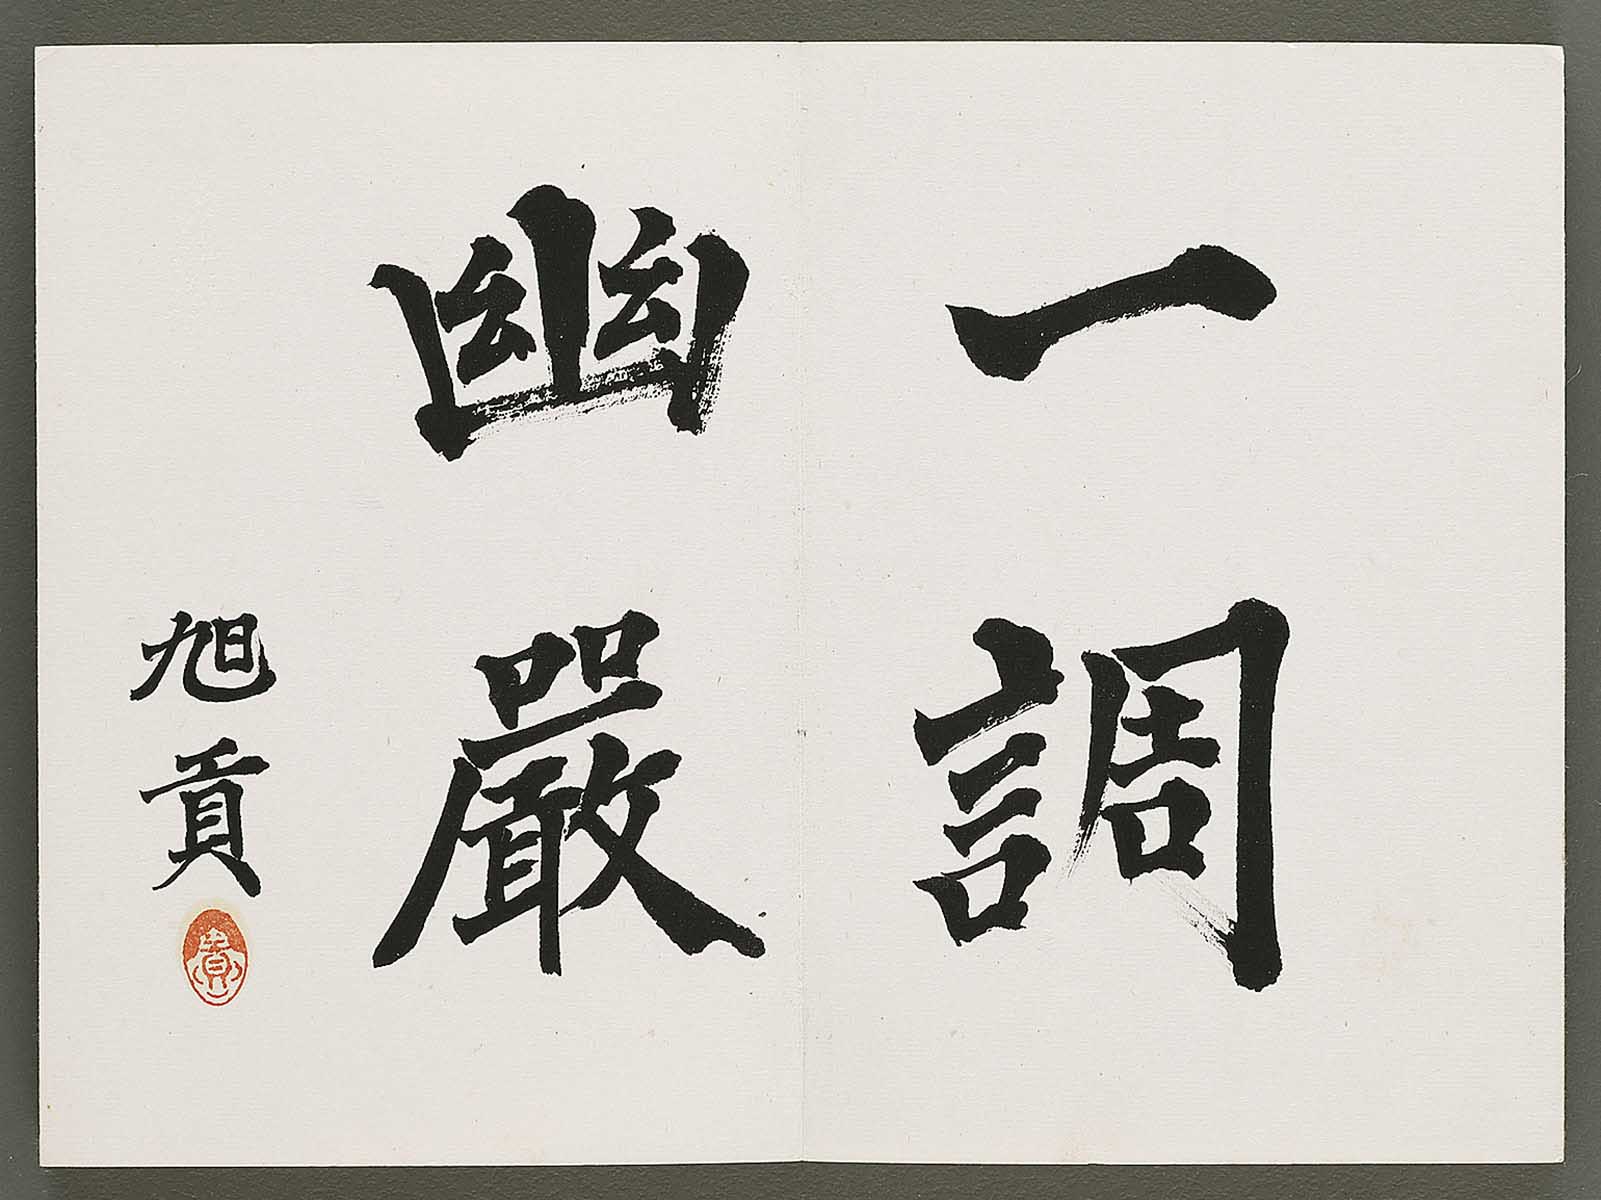 一調
幽嚴
旭貢